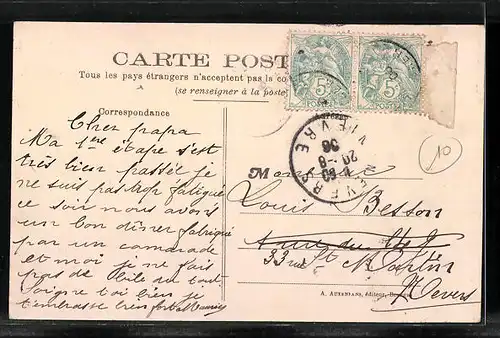 CARTE POST
Tous les pays étrangers n'acceptent pas la co
(se renseigner à la poste)
Correspondance
Cher papa
Ma 1ère étape s'est
très bien passée je
ne suis pas trop fatigué
ce soir nous avons
un bon diner fabriqué
par un camarade
et moi je ne fais
pas de bile du tout
Soigne toi bien je
t'embrasse bien fort
5c 5c
POSTES
NEVERS
NIEVRE
20 -8
06
10
M
Louis Besson
33 rue St Martin
Nevers
A. AUXENFANS, éditeur